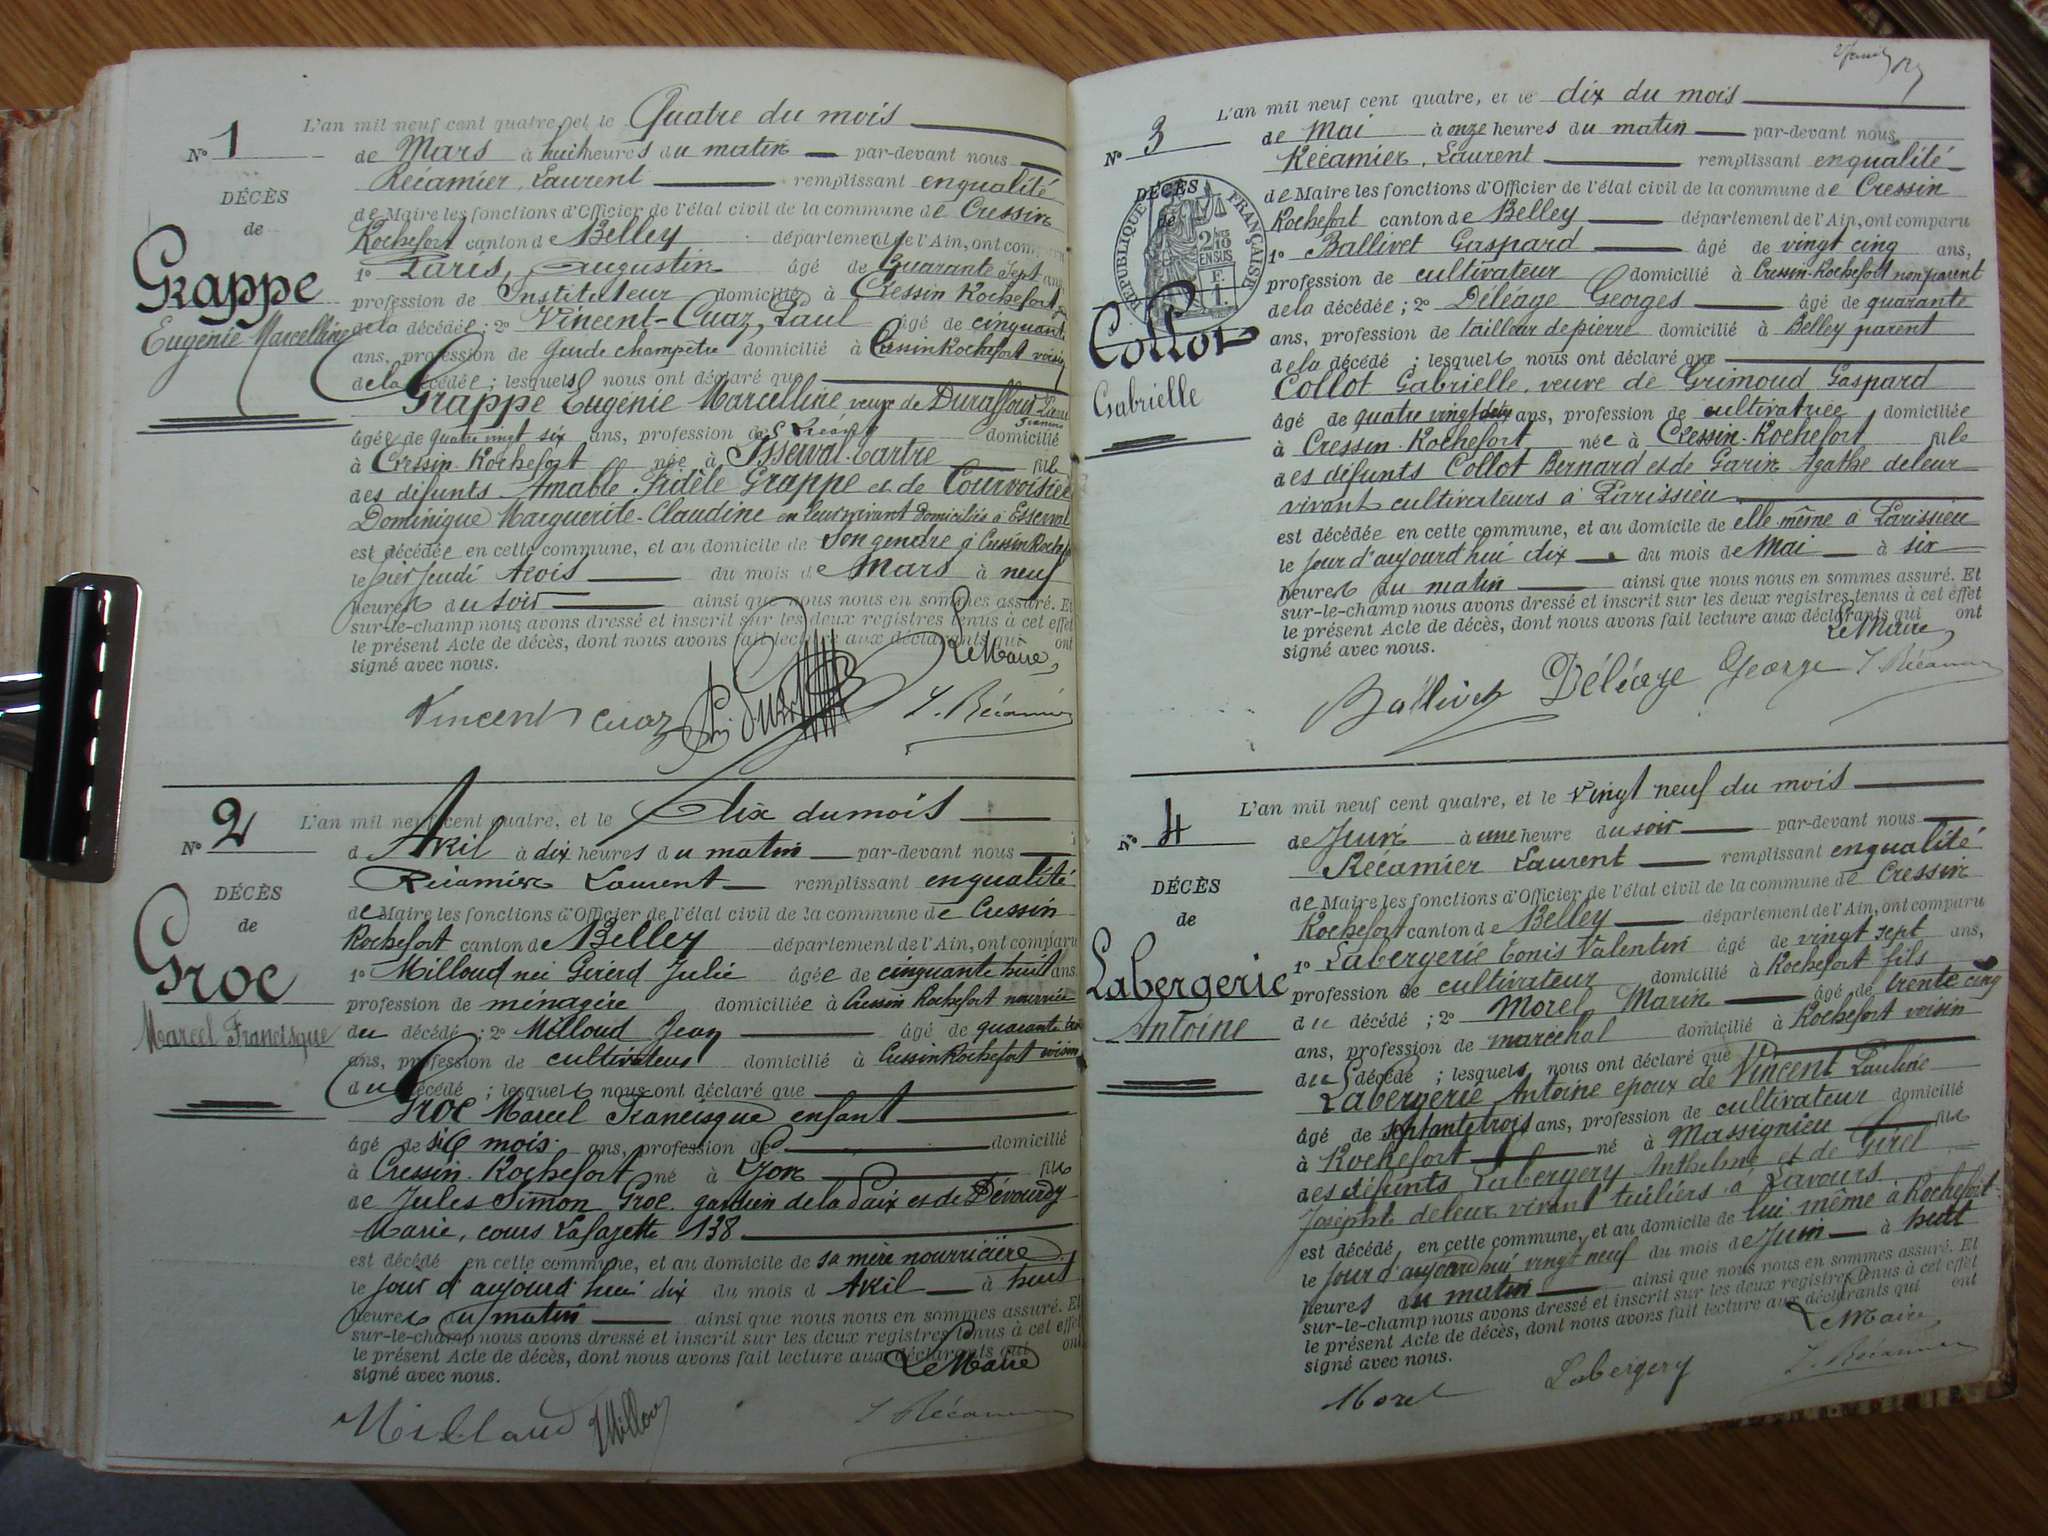 N° 1
DÉCÈS
de
Grappe
Eugénie Marcelline
L'an mil neuf cent quatre, et le Quatre du mois
de Mars à huit heures du matin par-devant nous
Récamier, Laurent remplissant en qualité
de Maire les fonctions d'Officier de l'état civil de la commune de Cressin
Rochefort canton de Belley département de l'Ain, ont com
1° Paris, Augustin âgé de Quarante sept ans,
profession de Instituteur domicilié à Cressin Rochefort
de la décédée; 2° Vincent-Cuaz, Paul âgé de cinquante
ans, profession de Garde champêtre domicilié à Cressin Rochefort voisin
de la décédée; lesquels nous ont déclaré que
Grappe Eugénie Marcelline veuve de Duraffourd
âgée de quatre vingt six ans, profession de domicilié
à Cressin-Rochefort née à Esserval-Tartre fille
des défunts Amable Fidèle Grappe et de Courvoisier
Dominique Marguerite-Claudine en leur vivant domiciliés à Esserval
est décédée en cette commune, et au domicile de son gendre à Cressin Rochefort
le hier jeudi trois du mois de Mars à neuf
heures du soir ainsi que nous nous en sommes assuré. Et
sur-le-champ nous avons dressé et inscrit sur les deux registres tenus à cet effet
le présent Acte de décès, dont nous avons fait lecture aux déclarants qui ont
signé avec nous.
Le Maire,
Vincent Cuaz
L. Récamier
N° 2
DÉCÈS
de
Groc
Marcel Francisque
L'an mil neuf cent quatre, et le dix du mois
d'Avril à dix heures du matin par-devant nous
Récamier Laurent remplissant en qualité
de Maire les fonctions d'Officier de l'état civil de la commune de Cressin
Rochefort canton de Belley département de l'Ain, ont comparu
1° Milloud née Girerd Julie âgée de cinquante huit ans
profession de ménagère domiciliée à Cressin Rochefort nourrice
du décédé; 2° Milloud Jean âgé de quarante
ans, profession de cultivateur domicilié à Cressin Rochefort voisin
du décédé; lesquels nous ont déclaré que
Groc Marcel Francisque enfant
âgé de six mois ans, profession de domicilié
à Cressin-Rochefort né à Lyon fils
de Jules Simon Groc gardien de la Paix et de Dévourdy
Marie, cours Lafayette 138
est décédé en cette commune, et au domicile de sa mère nourricière
le jour d'aujourd'hui dix du mois d'Avril à huit
heures du matin ainsi que nous nous en sommes assuré. Et
sur-le-champ nous avons dressé et inscrit sur les deux registres tenus à cet effet
le présent Acte de décès, dont nous avons fait lecture aux déclarants qui ont
signé avec nous.
Le Maire
Millaud Millou
L. Récamier
N° 3
DÉCÈS
de
Collot
Gabrielle
RÉPUBLIQUE FRANÇAISE
2/10 EN SUS
L'an mil neuf cent quatre, et le dix du mois
de Mai à onze heures du matin par-devant nous
Récamier, Laurent remplissant en qualité
de Maire les fonctions d'Officier de l'état civil de la commune de Cressin
Rochefort canton de Belley département de l'Ain, ont comparu
1° Ballivet Gaspard âgé de vingt cinq ans,
profession de cultivateur domicilié à Cressin-Rochefort non parent
de la décédée; 2° Déléage Georges âgé de quarante
ans, profession de tailleur de pierre domicilié à Belley parent
de la décédé; lesquels nous ont déclaré que
Collot Gabrielle, veuve de Grimoud Gaspard
âgé de quatre vingt ans, profession de cultivatrice domiciliée
à Cressin-Rochefort née à Cressin-Rochefort fille
des défunts Collot Bernard et de Garin Agathe de leur
vivant cultivateurs à Parissieu
est décédée en cette commune, et au domicile de elle même à Parissieu
le jour d'aujourd'hui dix du mois de Mai à six
heures du matin ainsi que nous nous en sommes assuré. Et
sur-le-champ nous avons dressé et inscrit sur les deux registres tenus à cet effet
le présent Acte de décès, dont nous avons fait lecture aux déclarants qui ont
signé avec nous.
Le Maire,
Ballivet Déléage George L. Récamier
N° 4
DÉCÈS
de
Labergerie
Antoine
L'an mil neuf cent quatre, et le vingt neuf du mois
de Juin à une heure du soir par-devant nous
Récamier Laurent remplissant en qualité
de Maire les fonctions d'Officier de l'état civil de la commune de Cressin
Rochefort canton de Belley département de l'Ain, ont comparu
1° Labergerie Tonis Valentin âgé de vingt sept ans,
profession de cultivateur domicilié à Rochefort fils
du décédé; 2° Morel Marin âgé de trente cinq
ans, profession de maréchal domicilié à Rochefort voisin
du décédé; lesquels nous ont déclaré que
Labergerie Antoine époux de Vincent Pauline
âgé de septante trois ans, profession de cultivateur domicilié
à Rochefort né à Massignieu fils
des défunts Labergery Anthelme et de Girel
Josephte de leur vivant tuiliers à Lavours
est décédé en cette commune, et au domicile de lui même à Rochefort
le jour d'aujourd'hui vingt neuf du mois de Juin à huit
heures du matin ainsi que nous nous en sommes assuré. Et
sur-le-champ nous avons dressé et inscrit sur les deux registres tenus à cet effet
le présent Acte de décès, dont nous avons fait lecture aux déclarants qui ont
signé avec nous.
Le Maire,
Morel Labergery L. Récamier